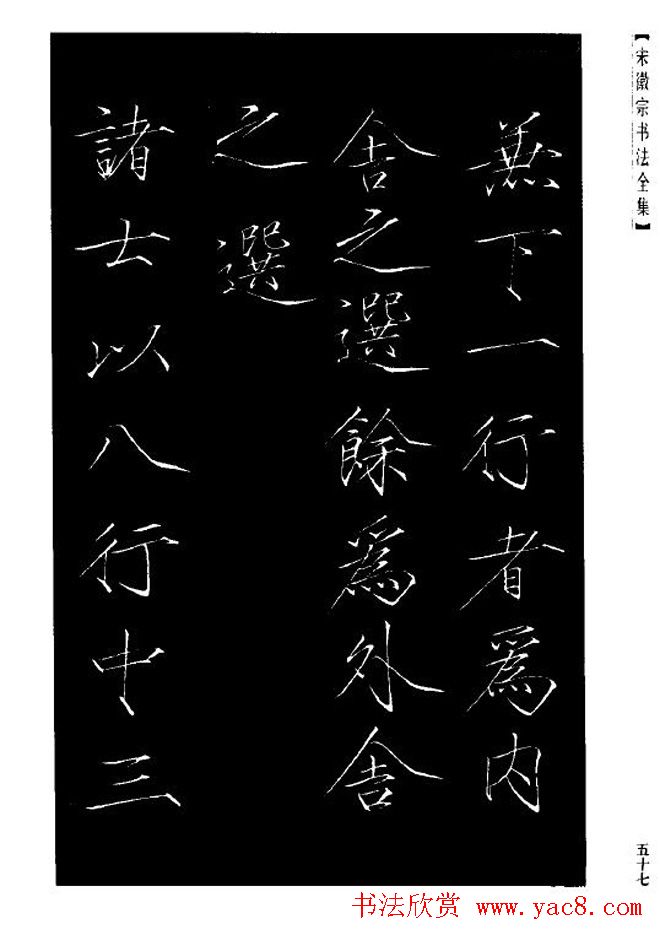 【宋徽宗书法全集】
兼下一行者爲内
舍之選餘爲外舍
之選
諸士以八行中三
五十七
书法欣赏 www.yac8.com